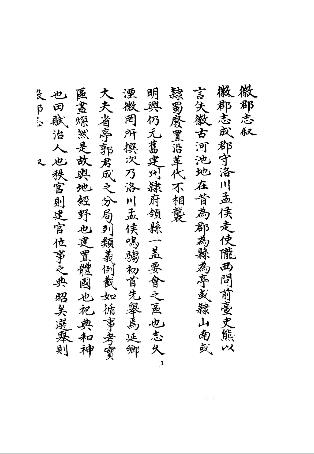 徽郡志叙
徽郡志成郡守洛川孟侯走使隴西問前臺史熊以
言夫徽古河池地在昔為郡為縣為亭或隸山南或
隸蜀廢置沿革代不相襲
明興仍元舊建州隸府領縣一蓋要會之區也志久
湮微罔所撰次乃洛川孟侯鳴騶初首先舉焉延鄉
大夫省亭郭君成之分局列類義例截如循事考實
區畫燦然是故輿地經野也建置體國也祀典和神
也田賦治人也秩官則建官位事之典昭矣選舉則